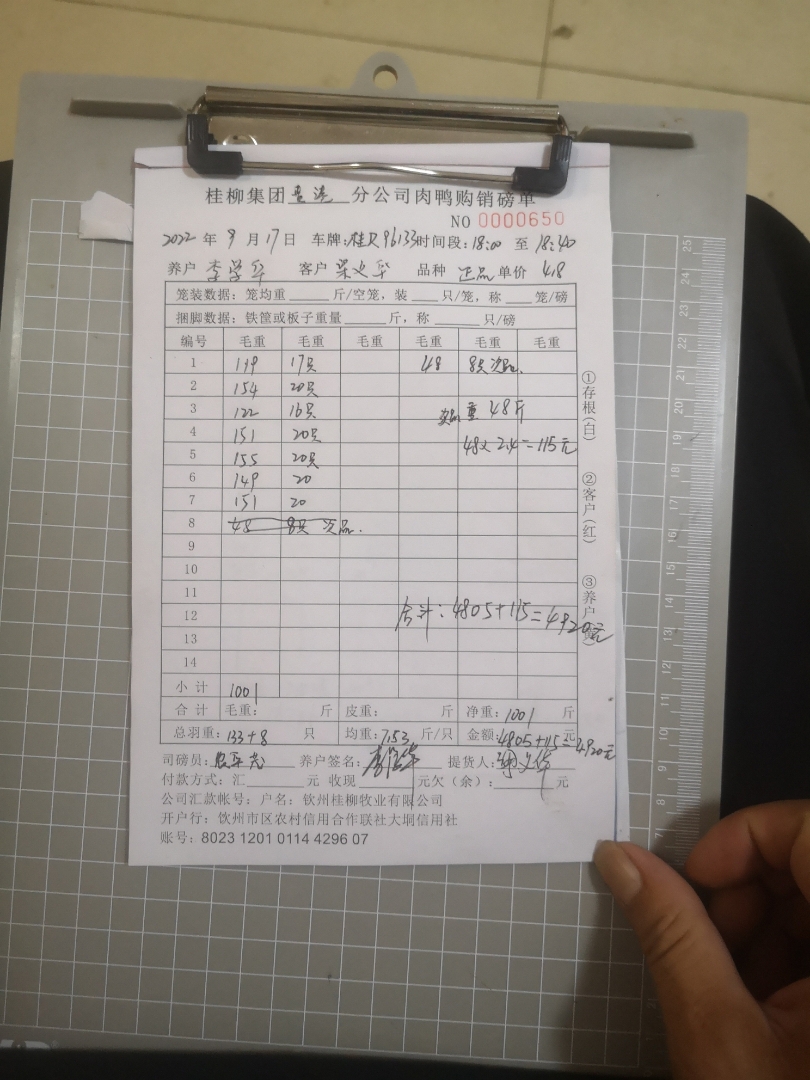 桂柳集团 分公司肉鸭购销磅单
NO 0000650
2022 年 9 月 17 日 车牌:桂R96133 时间段:18:00 至 18:40
养户 李学华 客户 梁文华 品种 正品 单价 4.8
笼装数据:笼均重 斤/空笼,装 只/笼,称 笼/磅
捆脚数据:铁筐或板子重量 斤,称 只/磅
编号 毛重 毛重 毛重 毛重 毛重 毛重
1 139 17只 48 8只次品.
2 154 20只
3 122 16只 次品重 48斤
4 151 20只
48×2.4=115元
5 155 20只
6 149 20
7 151 20
8 48 8只 次品.
9
10
11
12 合计:4805+115=4920元
13
14
小计 1001
合计 毛重: 斤 皮重: 斤 净重:1001 斤
总羽重:133+8 只 均重:7.53 斤/只 金额:4805+115=4920元
司磅员: 养户签名: 提货人:
付款方式:汇 元 收现 元欠(余): 元
公司汇款帐号:户名:钦州桂柳牧业有限公司
开户行:钦州市区农村信用合作联社大垌信用社
账号:8023 1201 0114 4296 07
①存根(白)
②客户(红)
③养户
25
24
23
22
21
20
19
18
17
16
15
14
13
12
11
10
9
8
7